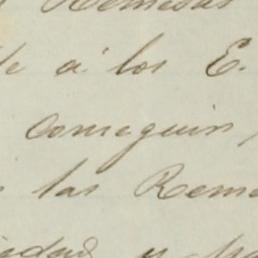 Remesas
de á los E.
conseguir,
las Reme
iedad y